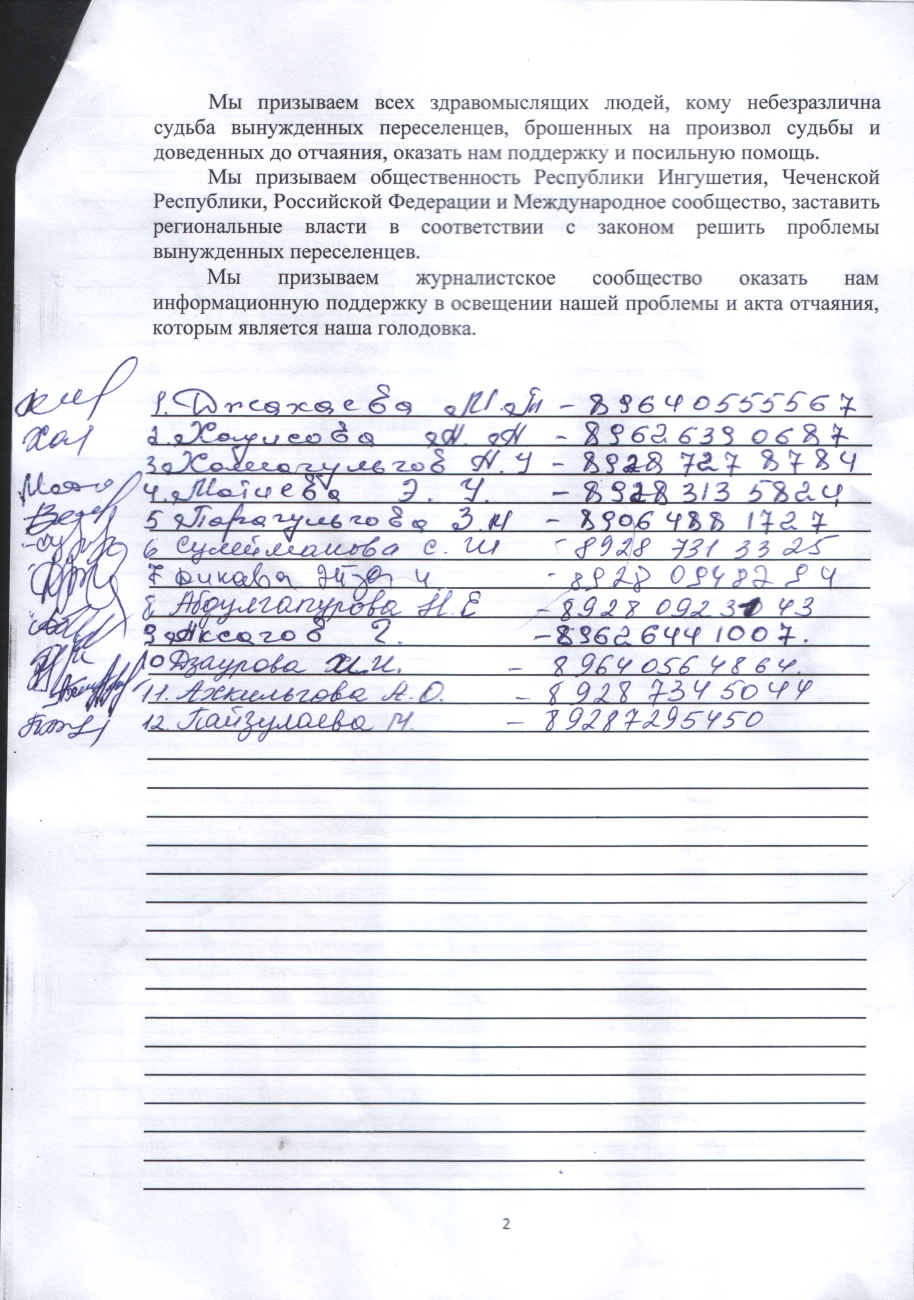 Мы призываем всех здравомыслящих людей, кому небезразлична
судьба вынужденных переселенцев, брошенных на произвол судьбы и
доведенных до отчаяния, оказать нам поддержку и посильную помощь.
Мы призываем общественность Республики Ингушетия, Чеченской
Республики, Российской Федерации и Международное сообщество, заставить
региональные власти в соответствии с законом решить проблемы
вынужденных переселенцев.
Мы призываем журналистское сообщество оказать нам
информационную поддержку в освещении нашей проблемы и акта отчаяния,
которым является наша голодовка.
1. М. - 89640555567
2. - 8962 639 0687
3. А. У - 8928 727 8784
4. Матиева Э. У. - 8928 313 5824
5 Парагульгова З.М - 8906 488 1727
6 Сулейманова С. Ш - 8928 731 33 25
7 - 8928
8 Абдулгапурова Н. Е - 8928 092 43
9 Аксагов - 8962 644 1007.
10 Дзаурова Х.И. - 8 964 056 48 64.
11. Ахкильгова А.О. - 8928 734 5044
12. Пайзулаева М. - 89287295450
2